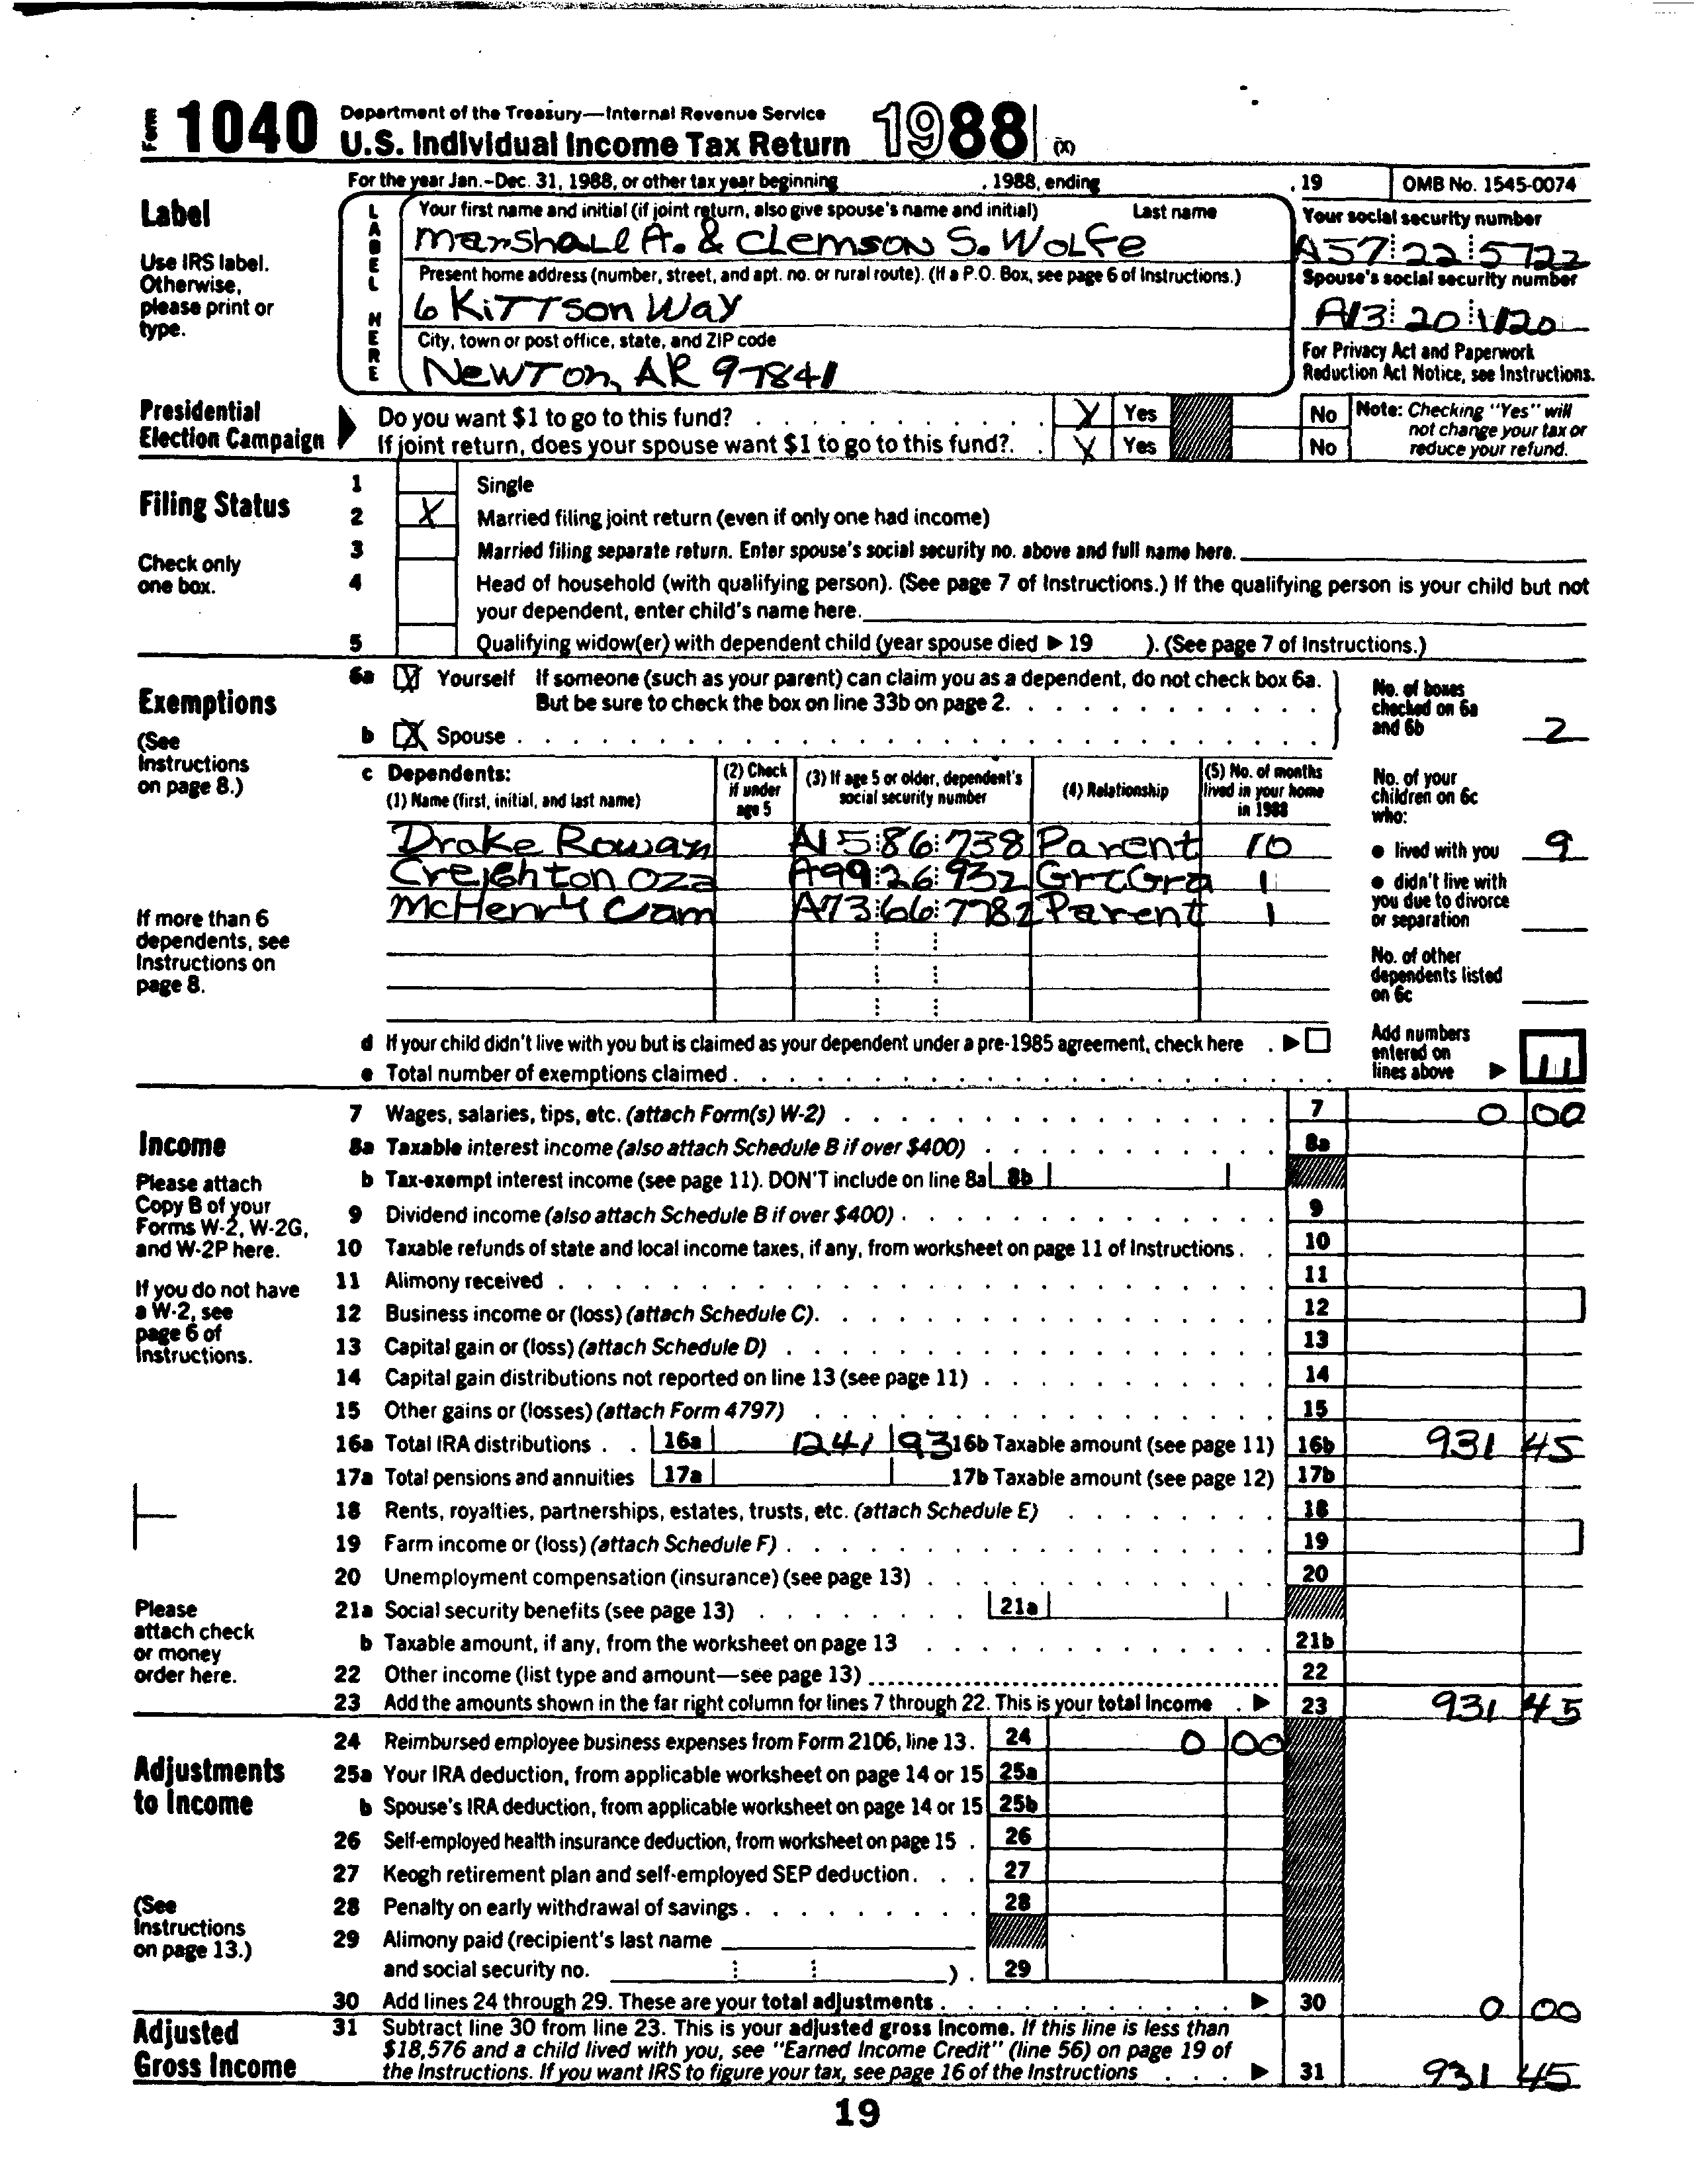 Form 1040 Department of the Treasury—Internal Revenue Service
U.S. Individual Income Tax Return 1988 (X)
For the year Jan.-Dec. 31, 1988, or other tax year beginning , 1988, ending , 19 OMB No. 1545-0074
Label
Use IRS label. Otherwise, please print or type.
LABEL HERE
Your first name and initial (if joint return, also give spouse's name and initial) Last name
Marshall A. & Clemson S. Wolfe
Your social security number
A57 22 5722
Present home address (number, street, and apt. no. or rural route). (If a P.O. Box, see page 6 of Instructions.)
6 Kittson Way
Spouse's social security number
A13 20 1120
City, town or post office, state, and ZIP code
Newton, AR 97841
For Privacy Act and Paperwork Reduction Act Notice, see Instructions.
Presidential Election Campaign
Do you want $1 to go to this fund? X Yes No
If joint return, does your spouse want $1 to go to this fund? X Yes No
Note: Checking "Yes" will not change your tax or reduce your refund.
Filing Status
Check only one box.
1 Single
2 X Married filing joint return (even if only one had income)
3 Married filing separate return. Enter spouse's social security no. above and full name here.
4 Head of household (with qualifying person). (See page 7 of Instructions.) If the qualifying person is your child but not
your dependent, enter child's name here.
5 Qualifying widow(er) with dependent child (year spouse died ▶ 19 ). (See page 7 of Instructions.)
Exemptions
(See Instructions on page 8.)
6a X Yourself If someone (such as your parent) can claim you as a dependent, do not check box 6a.
But be sure to check the box on line 33b on page 2.
b X Spouse
No. of boxes checked on 6a and 6b 2
c Dependents:
(1) Name (first, initial, and last name) (2) Check if under age 5 (3) If age 5 or older, dependent's social security number (4) Relationship (5) No. of months lived in your home in 1988
Drake Rowan A15 86 738 Parent 10
Creighton Oza A99 26 932 GrtGra 1
McHenry Cam A73 66 7782 Parent 1
If more than 6 dependents, see Instructions on page 8.
No. of your children on 6c who:
● lived with you 9
● didn't live with you due to divorce or separation
No. of other dependents listed on 6c
d If your child didn't live with you but is claimed as your dependent under a pre-1985 agreement, check here ▶
e Total number of exemptions claimed
Add numbers entered on lines above ▶ 11
Income
Please attach Copy B of your Forms W-2, W-2G, and W-2P here.
If you do not have a W-2, see page 6 of Instructions.
Please attach check or money order here.
7 Wages, salaries, tips, etc. (attach Form(s) W-2) 7 0 00
8a Taxable interest income (also attach Schedule B if over $400) 8a
b Tax-exempt interest income (see page 11). DON'T include on line 8a 8b
9 Dividend income (also attach Schedule B if over $400) 9
10 Taxable refunds of state and local income taxes, if any, from worksheet on page 11 of Instructions 10
11 Alimony received 11
12 Business income or (loss) (attach Schedule C) 12
13 Capital gain or (loss) (attach Schedule D) 13
14 Capital gain distributions not reported on line 13 (see page 11) 14
15 Other gains or (losses) (attach Form 4797) 15
16a Total IRA distributions 16a 1241 93 16b Taxable amount (see page 11) 16b 931 45
17a Total pensions and annuities 17a 17b Taxable amount (see page 12) 17b
18 Rents, royalties, partnerships, estates, trusts, etc. (attach Schedule E) 18
19 Farm income or (loss) (attach Schedule F) 19
20 Unemployment compensation (insurance) (see page 13) 20
21a Social security benefits (see page 13) 21a
b Taxable amount, if any, from the worksheet on page 13 21b
22 Other income (list type and amount—see page 13) 22
23 Add the amounts shown in the far right column for lines 7 through 22. This is your total income ▶ 23 931 45
Adjustments to Income
(See Instructions on page 13.)
24 Reimbursed employee business expenses from Form 2106, line 13. 24 0 00
25a Your IRA deduction, from applicable worksheet on page 14 or 15 25a
b Spouse's IRA deduction, from applicable worksheet on page 14 or 15 25b
26 Self-employed health insurance deduction, from worksheet on page 15 26
27 Keogh retirement plan and self-employed SEP deduction 27
28 Penalty on early withdrawal of savings 28
29 Alimony paid (recipient's last name
and social security no. ) 29
30 Add lines 24 through 29. These are your total adjustments ▶ 30 0 00
Adjusted Gross Income
31 Subtract line 30 from line 23. This is your adjusted gross income. If this line is less than
$18,576 and a child lived with you, see "Earned Income Credit" (line 56) on page 19 of
the Instructions. If you want IRS to figure your tax, see page 16 of the Instructions ▶ 31 931 45
19